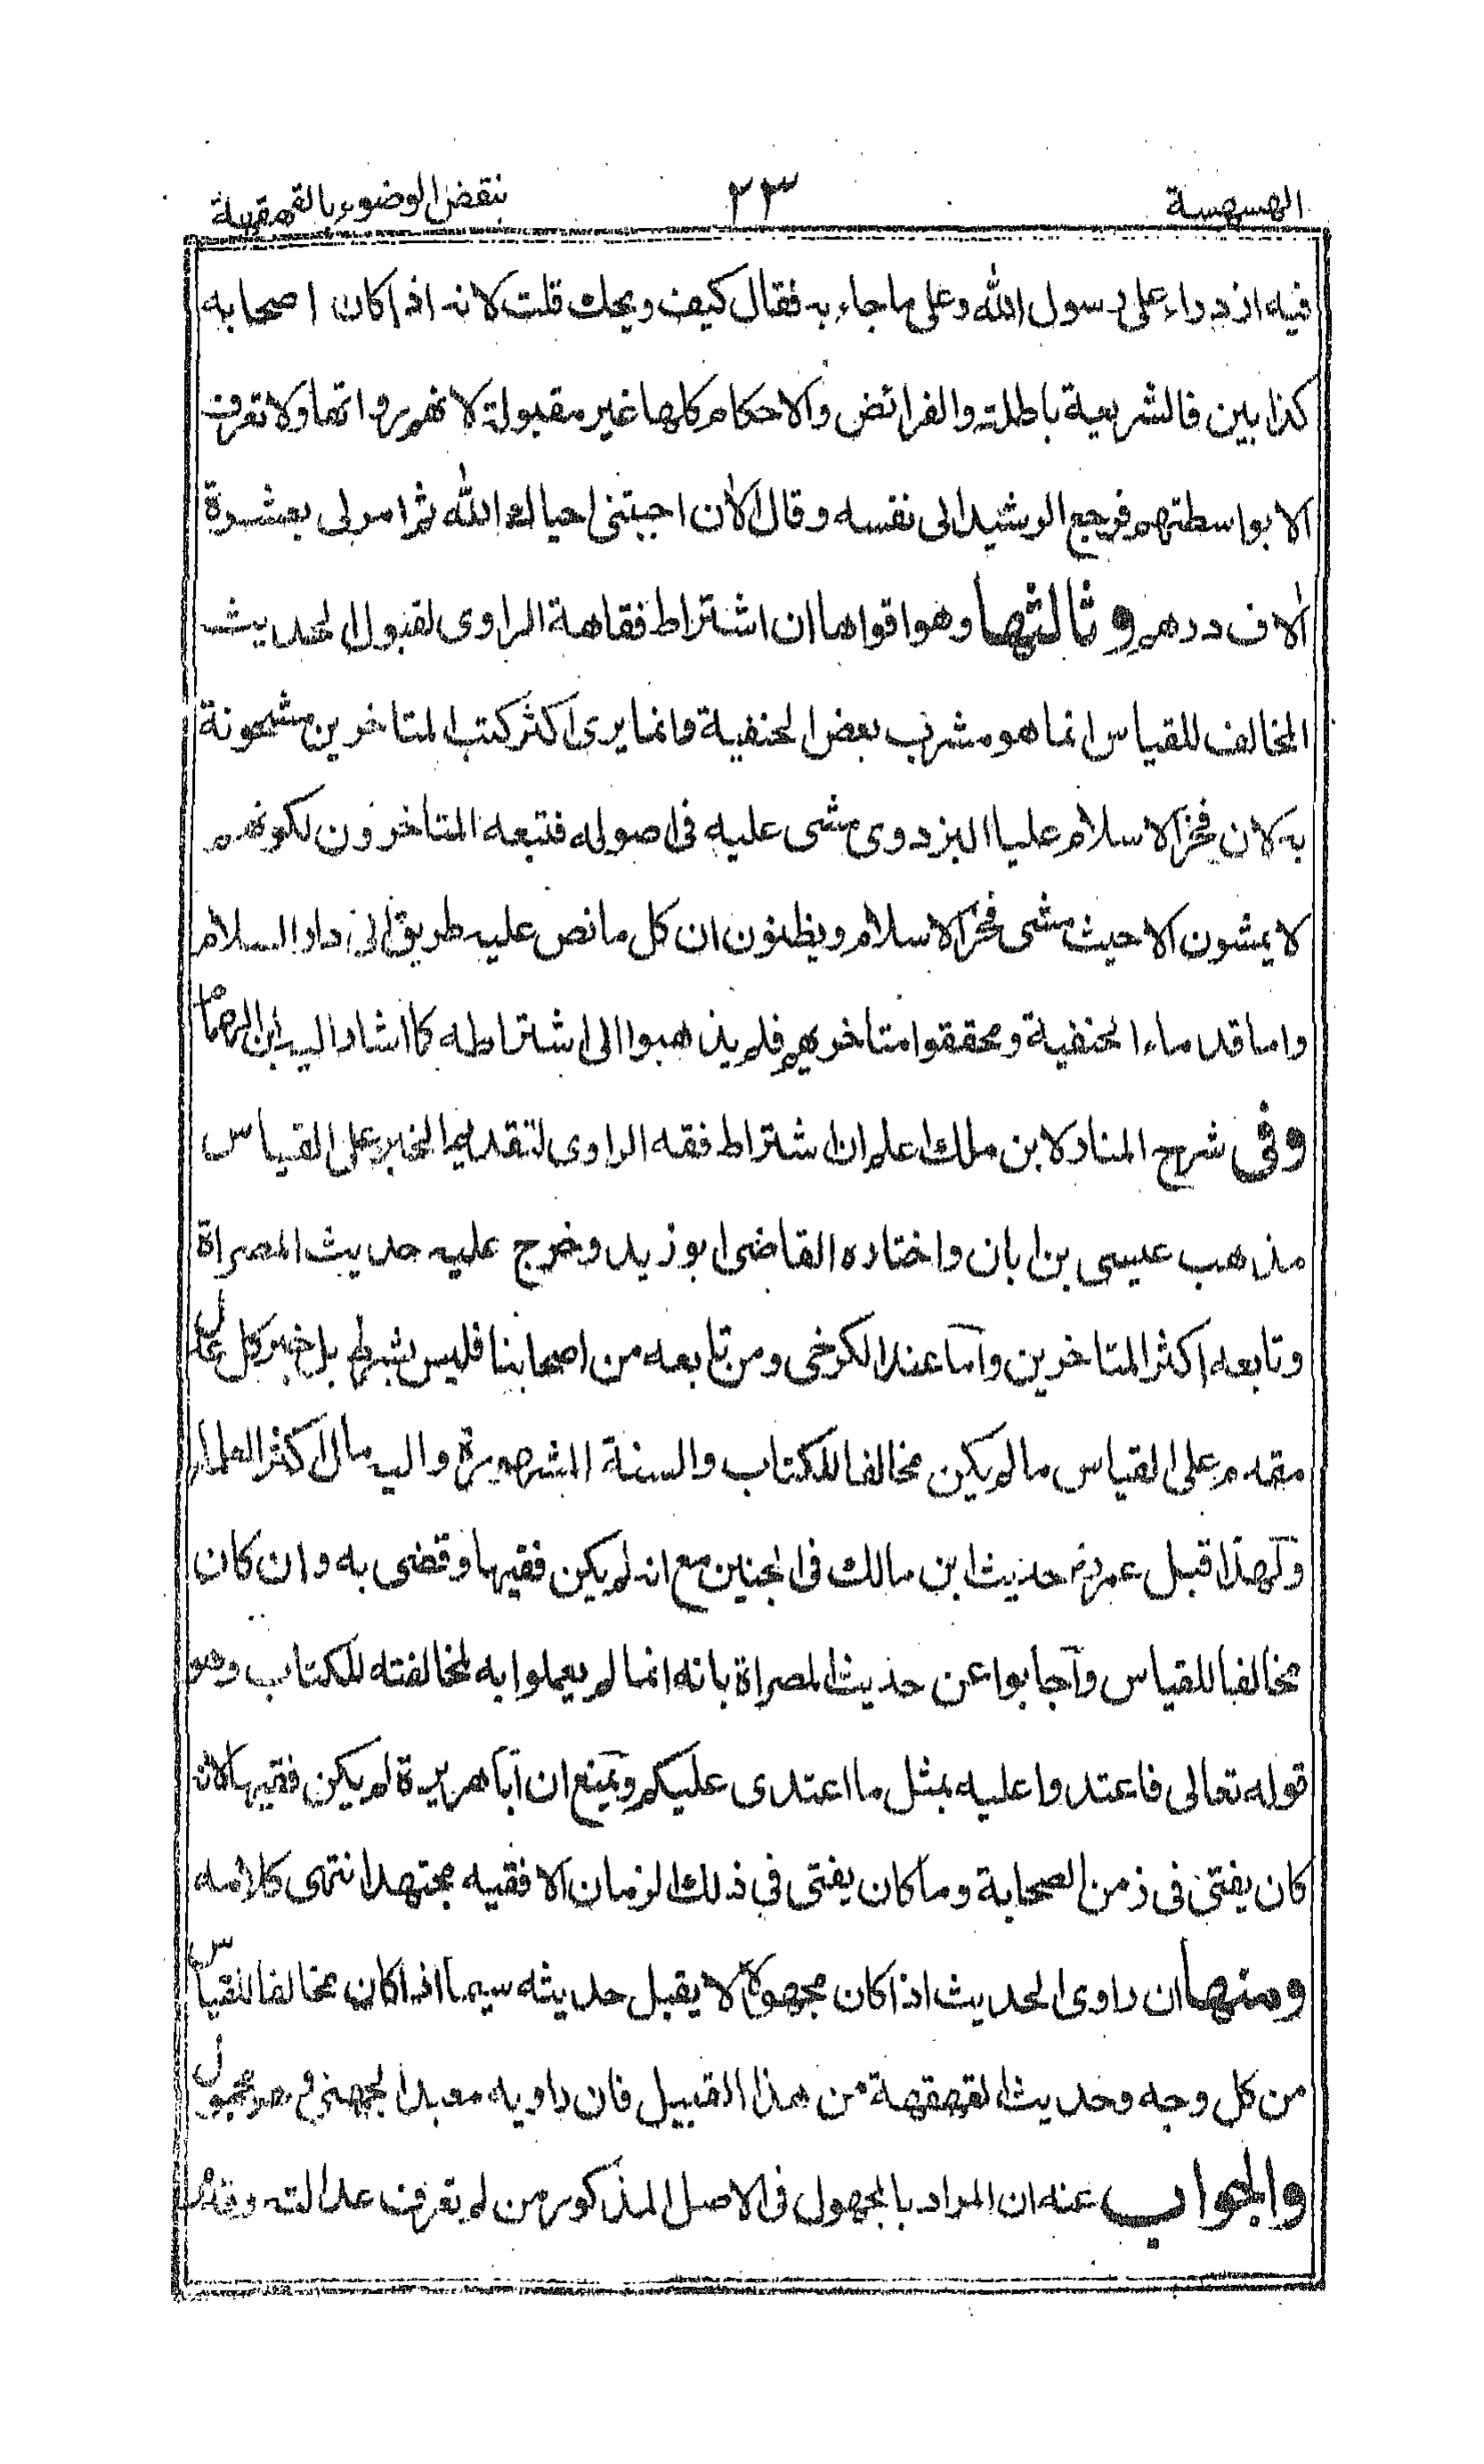 الهسهسة ٢٣ بنقض الوضوء بالقهقهة
فيه ازدراء على رسول الله وعلى ما جاء به فقال كيف ويحك قلت لانه اذا كان اصحابه
كذابين فالشريعة باطلة والفرائض والاحكام كلها غير مقبولة لانهم رواتها ولا تعرف
الا بواسطتهم فرجع الرشيد الى نفسه وقال الآن اجبتنى احياك الله ثم امر لى بعشرة
آلاف درهم وثالثها وهو اقواها ان اشتراط فقاهة الراوى لقبول الحديث
المخالف للقياس انما هو مشرب بعض الحنفية وانما يرى اكثر كتب المتاخرين مشحونة
به لان فخر الاسلام عليا البزدوى مشى عليه فى اصوله فتبعه المتاخرون لكونهم
لا يمشون الا حيث مشى فخر الاسلام ويظنون ان كل ما نص عليه طريق الى دار السلام
واما قدماء الحنفية ومحققوا متاخريهم فلم يذهبوا الى اشتراطه كما اشار اليه ابن الهمام
وفى شرح المنار لابن ملك اعلم ان اشتراط فقه الراوى لتقديم الخبر على القياس
مذهب عيسى بن ابان واختاره القاضى ابو زيد وخرج عليه حديث المصراة
وتابعه اكثر المتاخرين وآما عند الكرخى ومن تابعه من اصحابنا فليس بشرط بل خبر كل عدل
مقدم على القياس ما لم يكن مخالفا للكتاب والسنة المشهورة واليه مال اكثر العلماء
ولهذا قبل عمر رض حديث ابن مالك فى الجنين مع انه لم يكن فقيها وقضى به وان كان
مخالفا للقياس وآجابوا عن حديث المصراة بانه انما لم يعملوا به لمخالفته للكتاب وهو
قوله تعالى فاعتدوا عليه بمثل ما اعتدى عليكم ويمنع ان آبا هريرة لم يكن فقيها لانه
كان يفتى فى زمن الصحابة وما كان يفتى فى ذلك الزمان الا فقيه مجتهد انتهى كلامه
ومنها ان راوى الحديث اذا كان مجهولا لا يقبل حديثه سيما اذا كان مخالفا للقياس
من كل وجه وحديث القهقهة من هذا القبيل فان راويه معبد الجهنى وهو مجهول
والجواب عنه ان المراد بالمجهول فى الاصل المذكور من لم يعرف عدالته وفقه